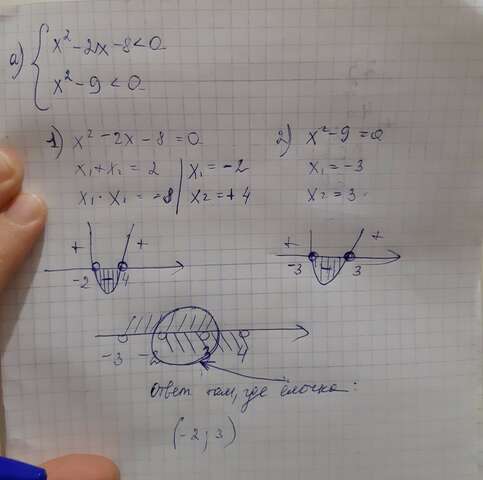 а) { x² - 2x - 8 < 0
x² - 9 < 0
1) x² - 2x - 8 = 0
x₁ + x₂ = 2 | x₁ = -2
x₁ · x₁ = -8 | x₂ = +4
2) x² - 9 = 0
x₁ = -3
x₂ = 3
+ - +
-2 4
+ - +
-3 3
-3 -2 3 4
Ответ там, где ёлочка:
(-2; 3)